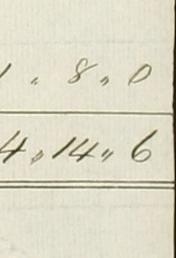 1 " 8 " 0
4 " 14 " 6